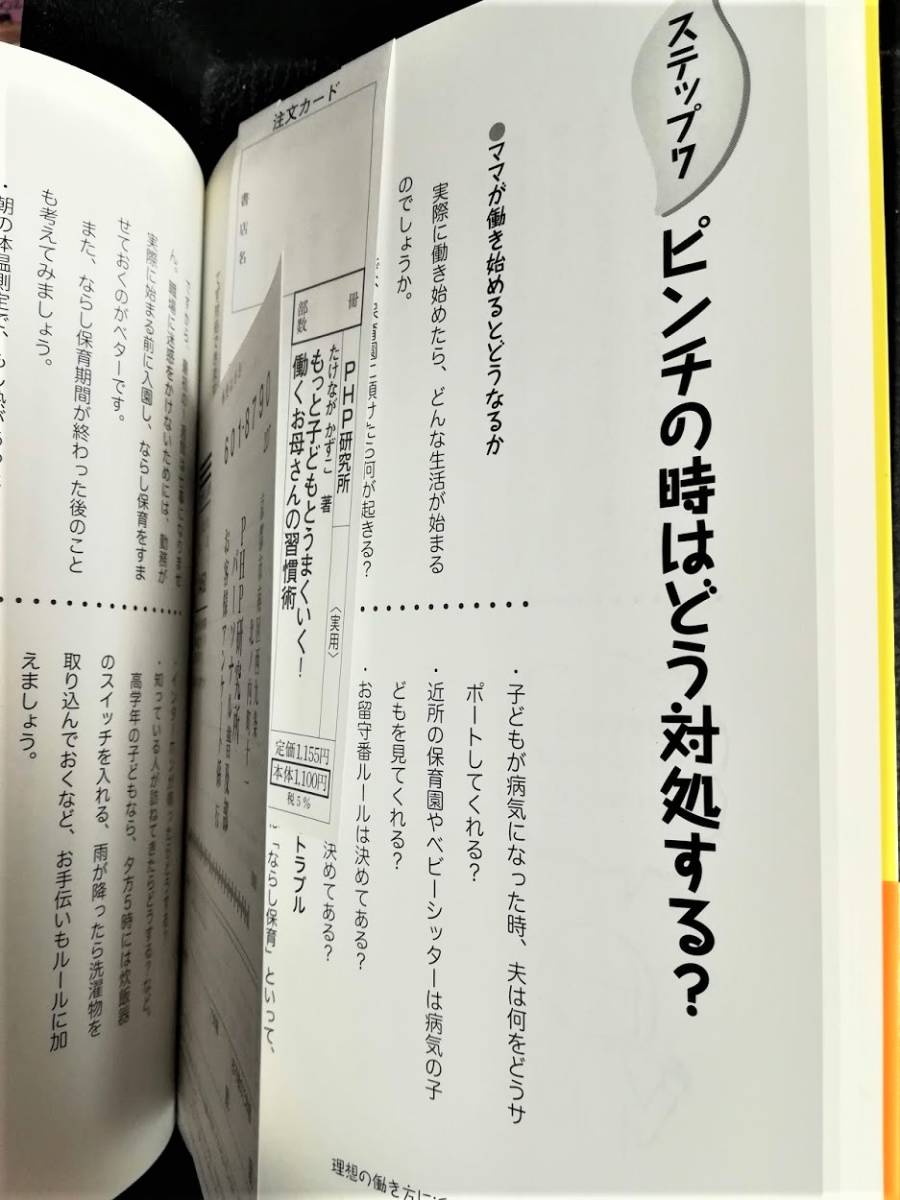 ステップ7
ピンチの時はどう対処する?
●ママが働き始めるとどうなるか
実際に働き始めたら、どんな生活が始まる
のでしょうか。
に預けたら何が起きる?
・子どもが病気になった時、夫は何をどうサ
ポートしてくれる?
・近所の保育園やベビーシッターは病気の子
どもを見てくれる?
・お留守番ルールは決めてある?
決めてある?
トラブル
「ならし保育」といって、
理想の働き方に
注文カード
書店名
部数
冊
PHP研究所
たけなが かずこ 著
もっと子どもとうまくいく!
働くお母さんの習慣術
〈実用〉
定価1,155円
本体1,100円
税5%
601-8790
PHP研究所
ん。職場に迷惑をかけないためには、勤務が
実際に始まる前に入園し、ならし保育をすま
せておくのがベターです。
また、ならし保育期間が終わった後のこと
も考えてみましょう。
・朝の体温測定で、
・知っている人が訪ねてきたらどうする?など。
高学年の子どもなら、夕方5時には炊飯器
のスイッチを入れる、雨が降ったら洗濯物を
取り込んでおくなど、お手伝いもルールに加
えましょう。